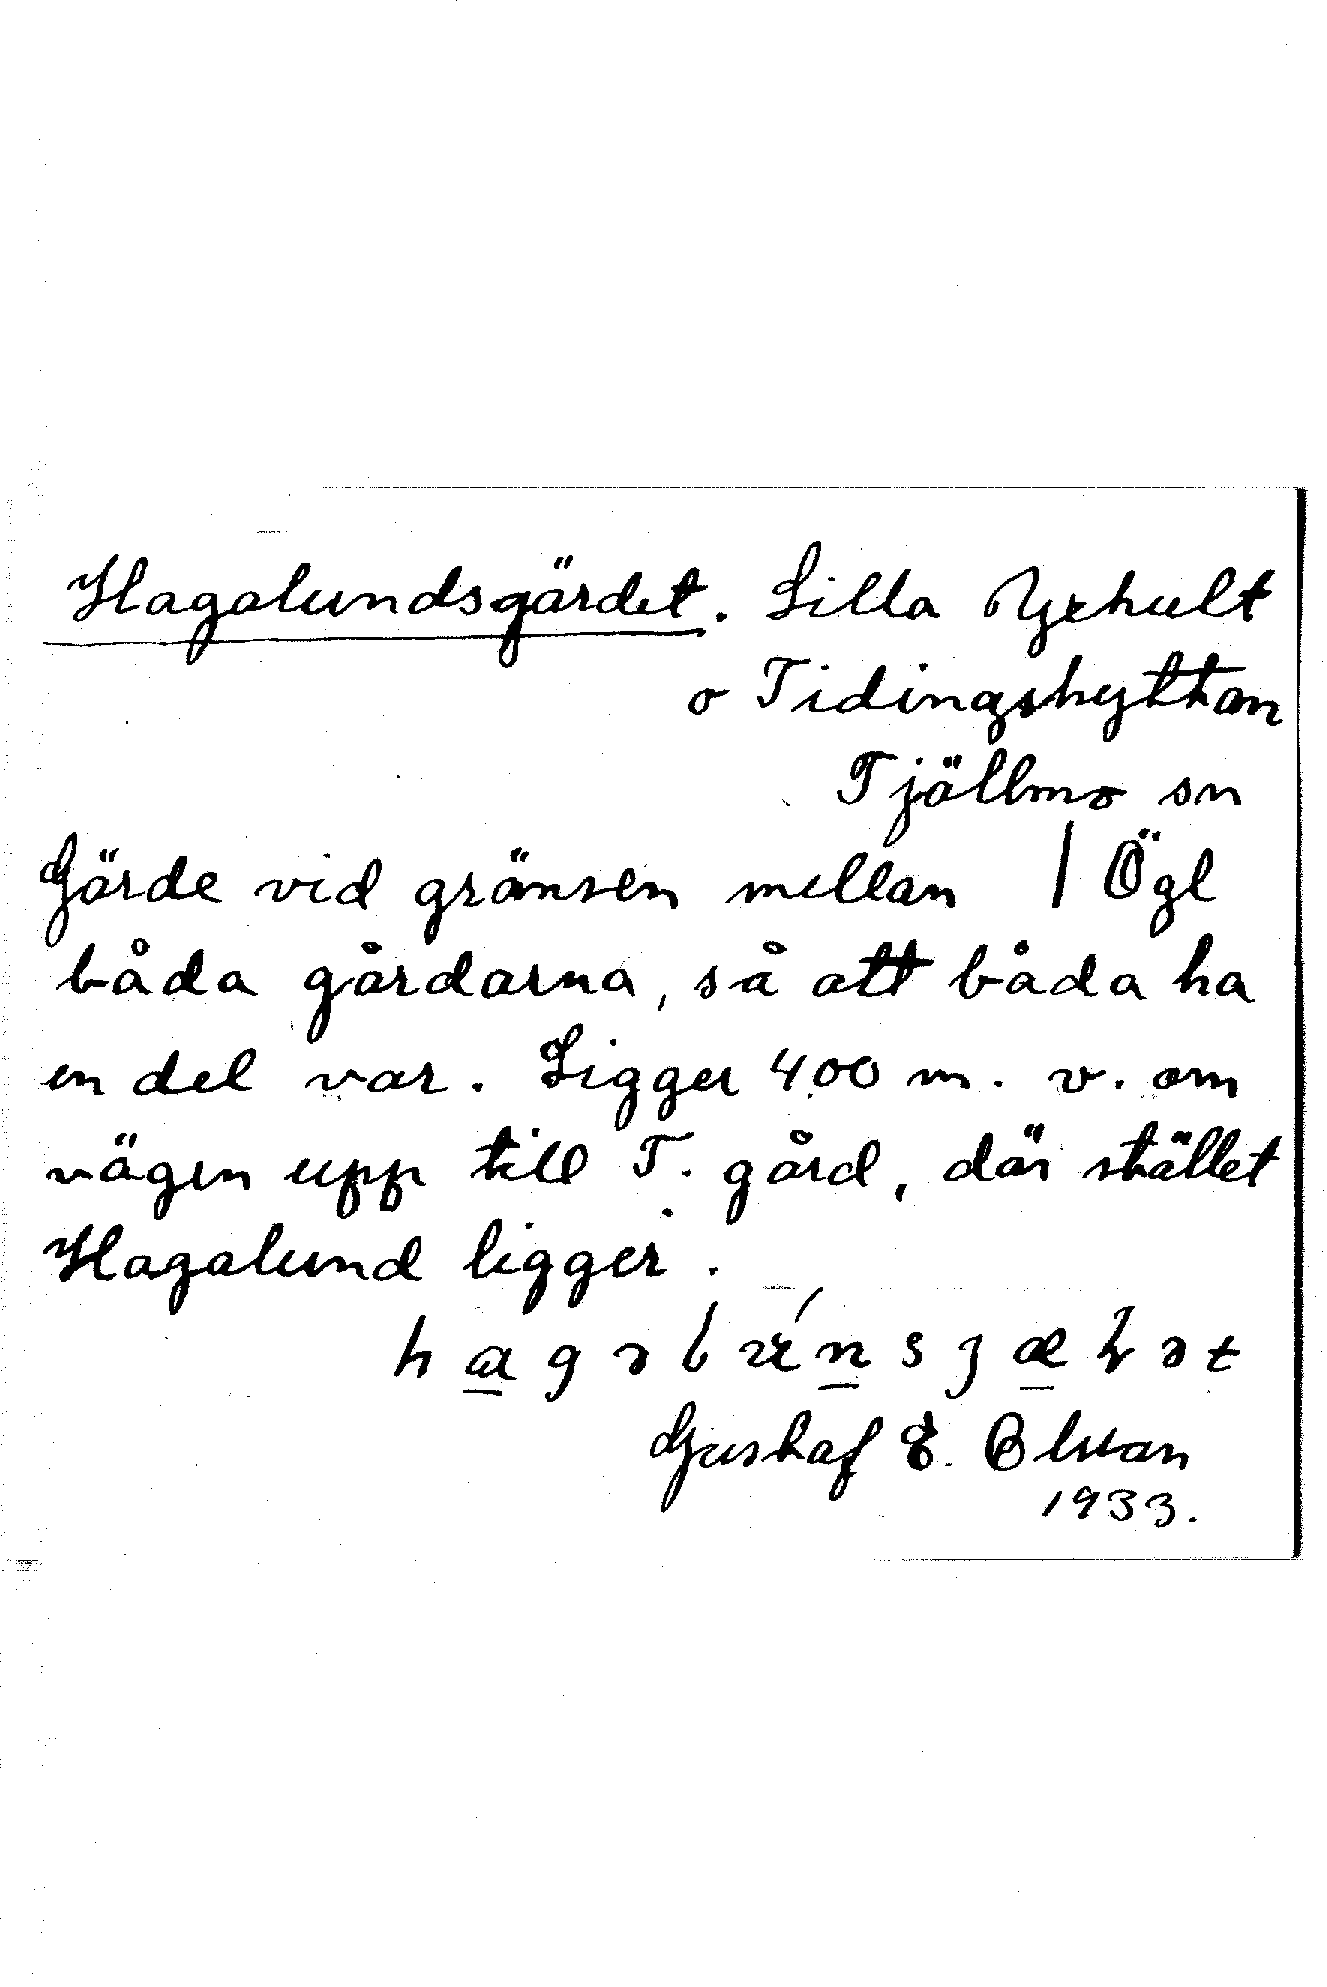 Hagalundsgärdet. Lilla Yxhult
o Tidingshyttan
Tjällmo sn
Gärde vid gränsen mellan / Ögl
båda gårdarna, så att båda ha
en del var. Ligger 400 m. v. om
vägen upp till T. gård, där stället
Hagalund ligger.
Gustaf E. Olsson
1933.